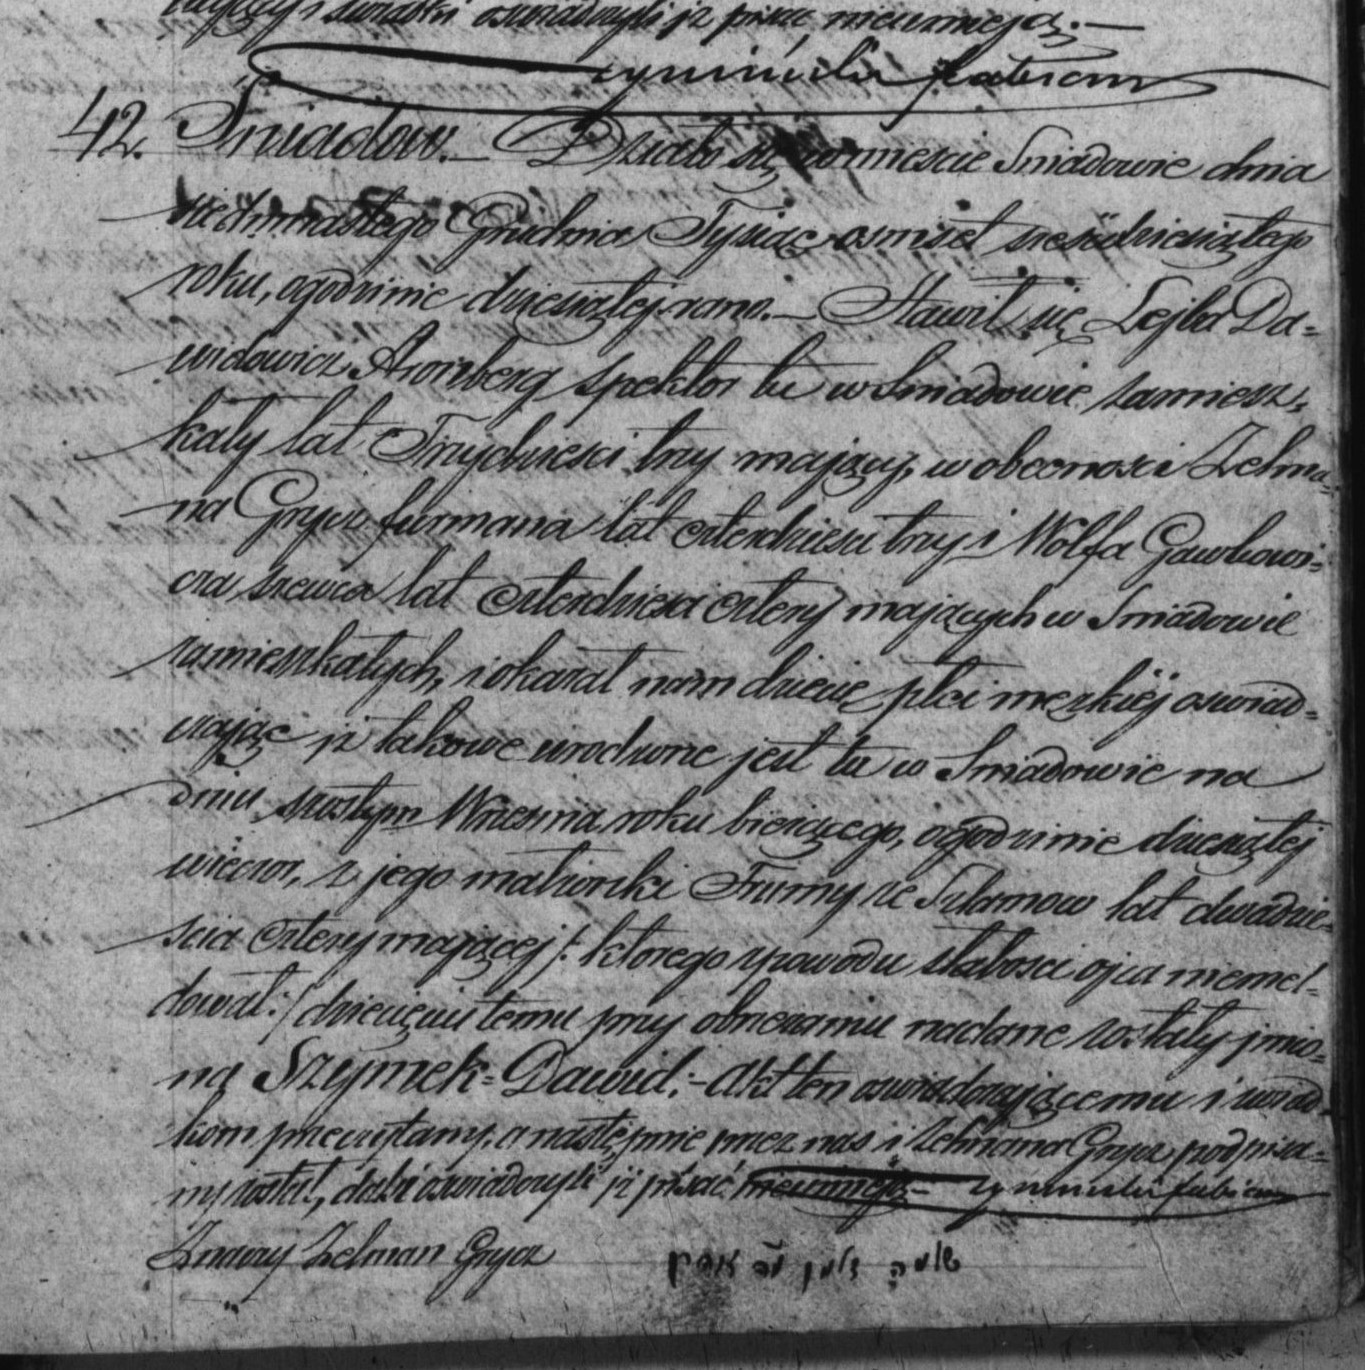 i świadki oświadczyli iż pisać nieumieją.—
42. Śniadow.— Działo się w miescie Sniadowie dnia
siedmnastego Grudnia Tysiąc osmset sześćdziesiątego
roku, ogodzinie dziesiątej rano.— Stawił się Lejba Da=
widowicz Aronberg spektor tu w Sniadowie zamiesz=
kały lat Trzydziesci trzy mający, w obecnosci Zelma=
na Grycz furmana lat czterdziesci trzy i Wolfa Gawkowi=
cza szewca lat czterdziesci cztery mających w Sniadowie
zamieszkałych, i okazał nam dziecię płci męzkiéj oswiad=
czając iż takowe urodzone jest tu w Sniadowie na
dniu szostym Wrzesnia roku bieżącego, ogodzinie dziesiątej
wieczor, z jego małżonki Frumy ze Szlamow lat dwadzie=
scia cztery mającej /: ktorego zpowodu słabosci ojca niemel=
dował :/ dziecięciu temu przy obrzezaniu nadane zostały imio=
na Szymek=Dawid.— Akt ten oswiadczającemu i swiad=
kom przeczytany, a następnie przez nas i Zelmana Grycz podpisa=
ny został, oswiadczyli iż pisać nieumieją.—
Znaczy Zelman Grycz